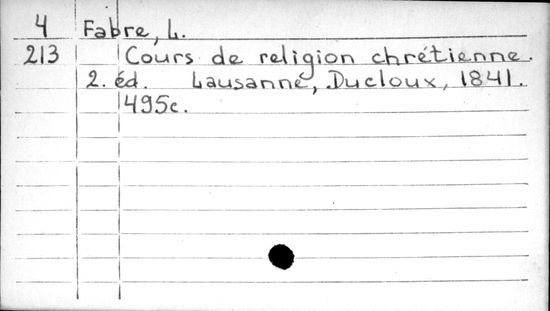 4 Fabre, L.
213 Cours de religion chrétienne.
2. éd. Lausanne, Ducloux, 1841.
495c.